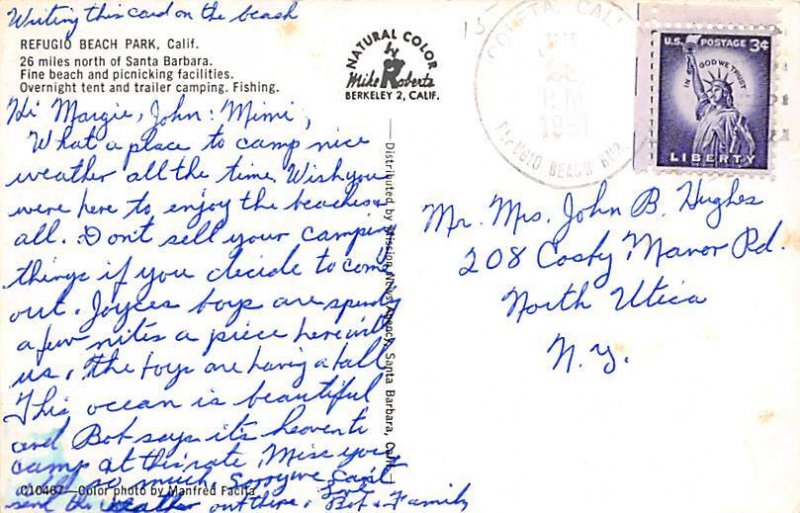 Writing this card on the beach
REFUGIO BEACH PARK, Calif.
26 miles north of Santa Barbara.
Fine beach and picnicking facilities.
Overnight tent and trailer camping. Fishing.
NATURAL COLOR
by
Mike Roberts
BERKELEY 2, CALIF.
Hi Margie, John: Mimi,
What a place to camp nice
weather all the time. Wish you
were here to enjoy the beaches &
all. Don't sell your camping
things if you decide to come
out. Joyces boys are spendg
a few nites a piece here with
us, the boys are having a ball
This ocean is beautiful
and Bob says its heaven to
camp at this rate. Miss you
all so much, Sorry we can't
send the weather out there, Love
Bob & Family
C10467—Color photo by Manfred Facita
Distributed by Mission News Agency, Santa Barbara, Calif.
GOLETA, CALIF.
28
P.M
1961
REFUGIO BEACH RUR.
U.S. POSTAGE 3¢
IN GOD WE TRUST
LIBERTY
Mr. Mrs. John B. Hughes
208 Cosby Manor Rd.
North Utica
N.Y.